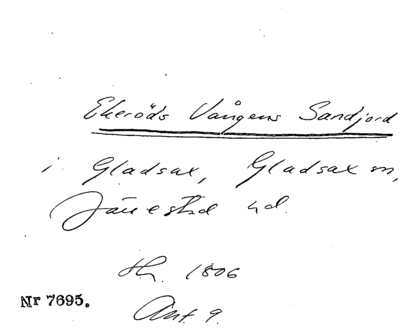 Ekeröds Vångens Sandjord
i Gladsax, Gladsax sn,
Järrestad hd.
Hl. 1806
Nr 7695.
Ant. 9.